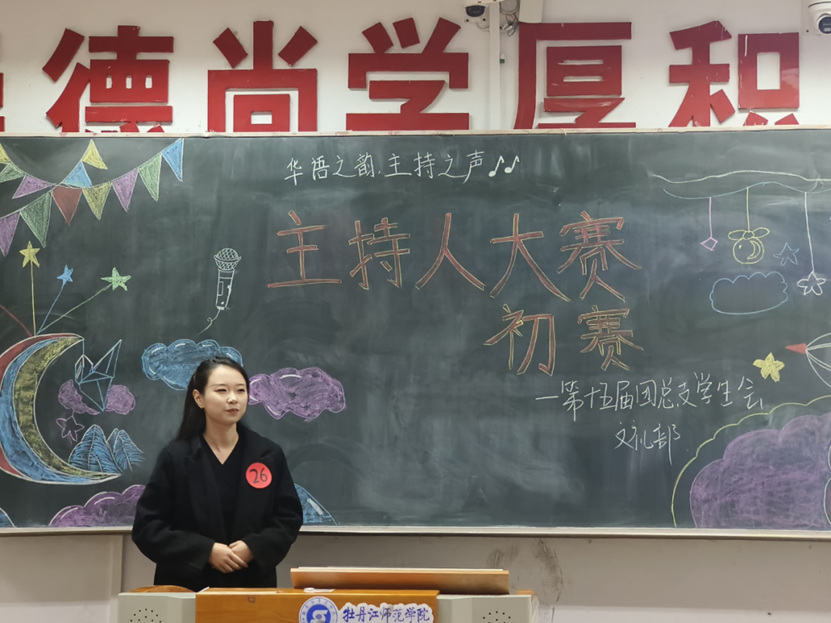 德尚学厚积
华语之韵.主持之声
主持人大赛
初赛
—第十五届团总支学生会
文礼部
26
牡丹江师范学院